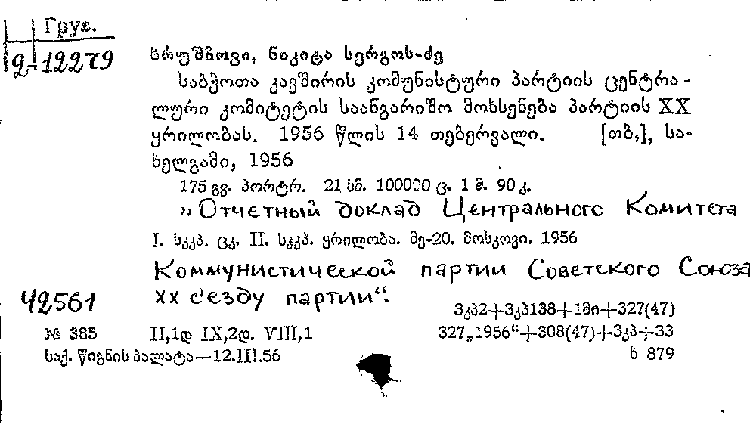 Груз.
g-12279
ხრუშჩოვი, ნიკიტა სერგოს-ძე
საბჭოთა კავშირის კომუნისტური პარტიის ცენტრა-
ლური კომიტეტის საანგარიშო მოხსენება პარტიის XX
ყრილობას. 1956 წლის 14 თებერვალი. [თბ.], სა-
ხელგამი, 1956
175 გვ. პორტრ. 21 სმ. 100000 ც. 1 მ. 90 კ.
„Отчетный доклад Центрального Комитета
I. სკკპ. ცკ. II. სკკპ. ყრილობა. მე-20. მოსკოვი. 1956
Коммунистической партии Советского Союза
XX с'езду партии“.
42561
3კპ2+3კპ138+1მი+327(47)
№ 385 II,1დ IX,2დ. VIII,1 327„1956“+308(47)+3კპ+33
საქ. წიგნის პალატა—12.III.56 ხ 879